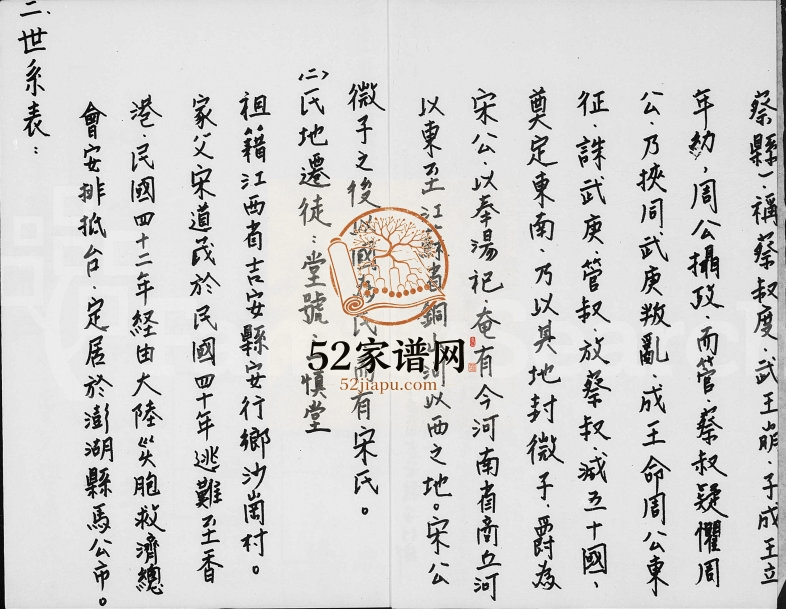 蔡縣）、稱蔡叔度、武王崩、子成王立
年幼，周公攝政、而管、蔡叔疑懼周
公、乃挾同、武庚叛亂、成王命周公東
征、誅武庚、管叔、放蔡叔、滅五十國、
奠定東南、乃以其地封微子、爵為
宋公、以奉湯祀、奄有今河南省商丘河
以東至江蘇省銅山河以西之地。宋公
微子之後以國為氏而有宋氏。
（二）氏地遷徒：堂號、慎堂
祖籍江西省吉安縣安行鄉沙崗村。
家父宋道茂於民國四十年逃難至香
港、民國四十二年経由大陸災胞救濟總
會安排抵台、定居於澎湖縣馬公市。
二、世系表：
52家谱网
52jiapu.com